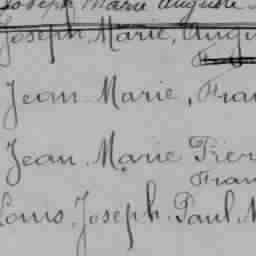 Joseph Marie Auguste
Joseph, Marie, Augu
Jean Marie, Fran
Jean Marie Pier
Fran
Louis, Joseph, Paul, M